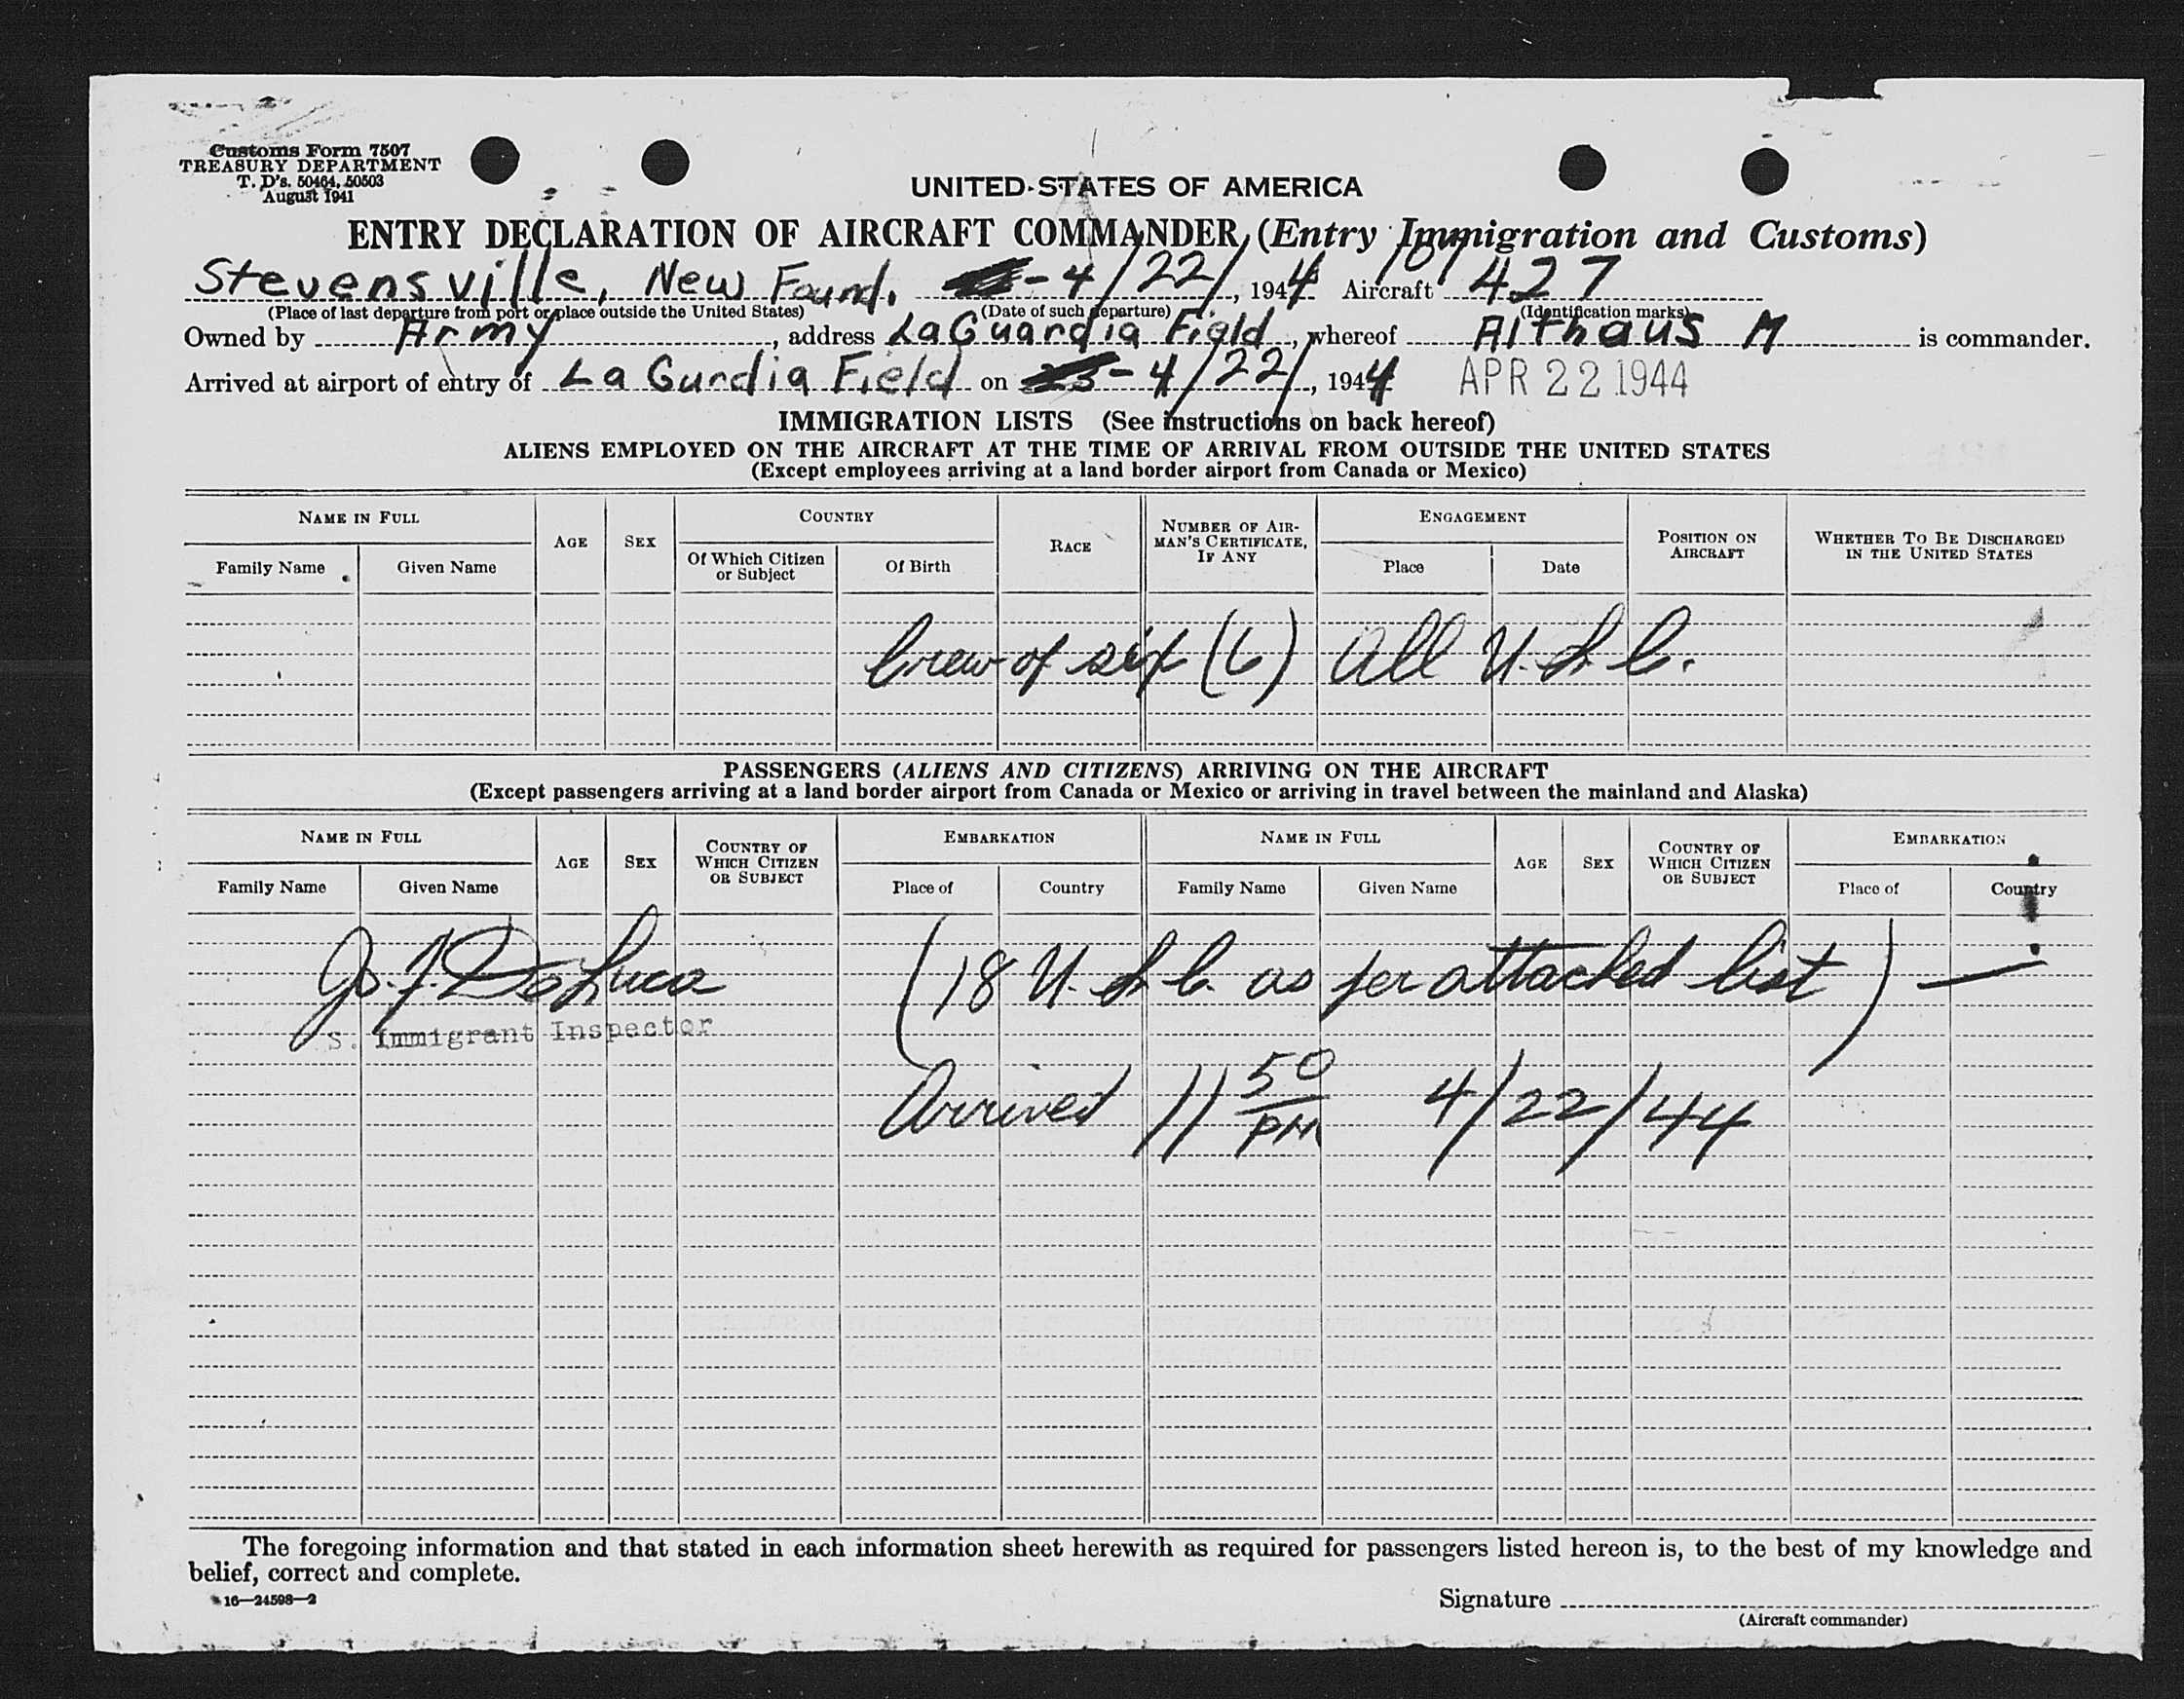 Customs Form 7507
TREASURY DEPARTMENT
T. D's. 50464, 50503
August 1941
UNITED STATES OF AMERICA
ENTRY DECLARATION OF AIRCRAFT COMMANDER (Entry Immigration and Customs)
Stevensville, New Found. - 4/22/, 1944 Aircraft 427
(Place of last departure from port or place outside the United States) (Date of such departure) (Identification marks)
Owned by Army, address LaGuardia Field, whereof Althaus M is commander.
Arrived at airport of entry of La Gurdia Field on - 4/22/, 1944 APR 22 1944
IMMIGRATION LISTS (See instructions on back hereof)
ALIENS EMPLOYED ON THE AIRCRAFT AT THE TIME OF ARRIVAL FROM OUTSIDE THE UNITED STATES
(Except employees arriving at a land border airport from Canada or Mexico)
NAME IN FULL AGE SEX COUNTRY RACE NUMBER OF AIRMAN'S CERTIFICATE, IF ANY ENGAGEMENT POSITION ON AIRCRAFT WHETHER TO BE DISCHARGED IN THE UNITED STATES
Family Name Given Name Of Which Citizen or Subject Of Birth Place Date
Crew of six (6) All U.S.C.
PASSENGERS (ALIENS AND CITIZENS) ARRIVING ON THE AIRCRAFT
(Except passengers arriving at a land border airport from Canada or Mexico or arriving in travel between the mainland and Alaska)
NAME IN FULL AGE SEX COUNTRY OF WHICH CITIZEN OR SUBJECT EMBARKATION NAME IN FULL AGE SEX COUNTRY OF WHICH CITIZEN OR SUBJECT EMBARKATION
Family Name Given Name Place of Country Family Name Given Name Place of Country
DeLuca (18 U.S.C. as per attached list) —
S. Immigrant Inspector
Arrived 11 50 PM 4/22/44
The foregoing information and that stated in each information sheet herewith as required for passengers listed hereon is, to the best of my knowledge and
belief, correct and complete.
16—24598—2
Signature
(Aircraft commander)